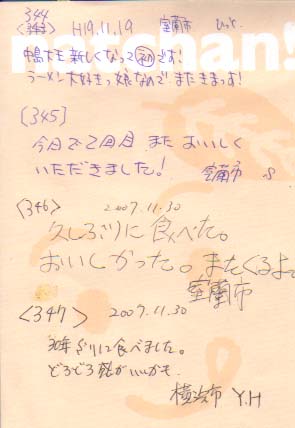 344
H19.11.19 室蘭市 ひっと。
中島太も新しくなって㊞です!
ラーメン大好きっ娘なので また来まっす!
[345]
今日で2回目 また おいしく
いただきました! 室蘭市 S
<346> 2007.11.30
久しぶりに食べた。
おいしかった。またくるよ。
室蘭市
<347> 2007.11.30
30年ぶりに食べました。
どろどろ 気がいいかも.
横浜市 Y.H